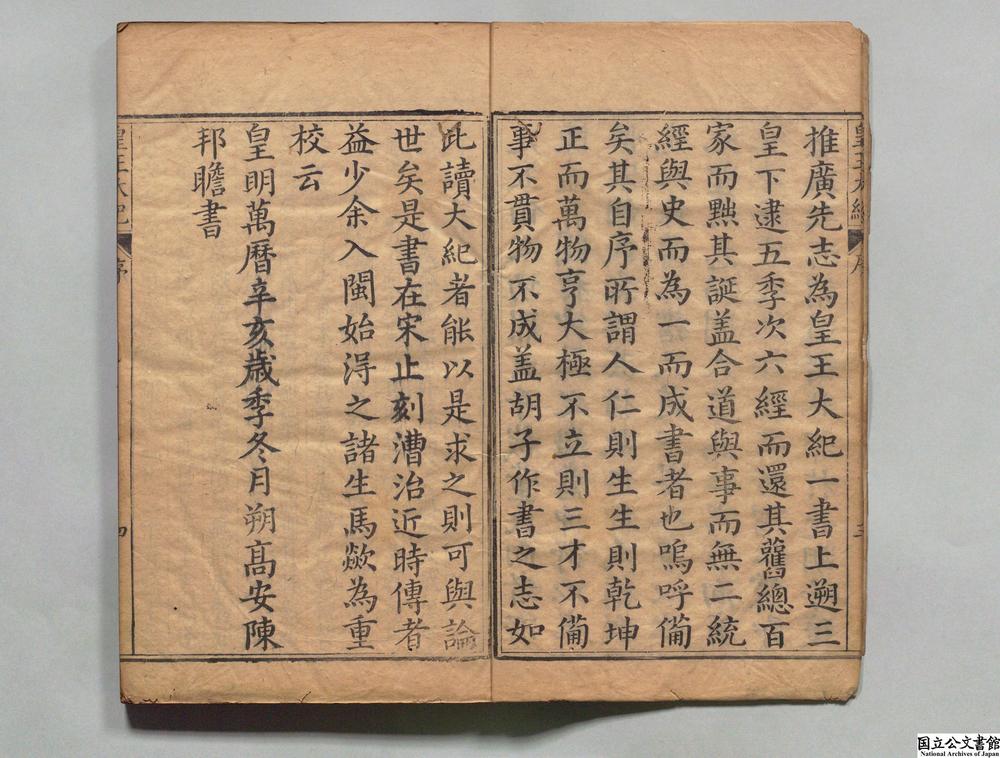 皇王大紀 序 三
推廣先志為皇王大紀一書上遡三
皇下逮五季次六經而還其舊總百
家而黜其誕盖合道與事而無二統
經與史而為一而成書者也嗚呼備
矣其自序所謂人仁則生生則乾坤
正而萬物亨大極不立則三才不備
事不貫物不成盖胡子作書之志如
此讀大紀者能以是求之則可與論
世矣是書在宋止刻漕治近時傳者
益少余入閩始淂之諸生馬歘為重
校云
皇明萬曆辛亥歲季冬月朔髙安陳
邦瞻書
皇王大紀 序 四
国立公文書館
National Archives of Japan